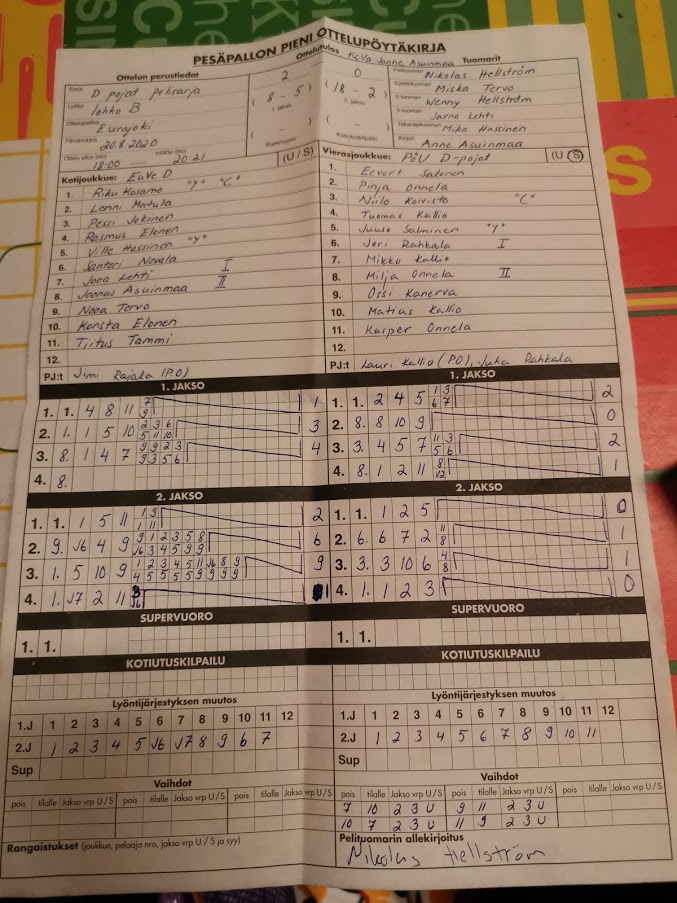 PESÄPALLON PIENI OTTELUPÖYTÄKIRJA
Ottelun perustiedot
Ottelutulos
KuVo Janne Asuinmaa
Tuomarit
Sarja D pojat pelisarja
2
0
Pelituomari Nikolas Hellström
( 8 - 5 )
( 18 - 2 )
Miska Tervo
Lohko lohko B
1. jakso
2. jakso
2-tuomari Wenny Hellström
Ottelupaikka Eurajoki
3-tuomari Jarno Lehti
( - )
( - )
Takarajatuomari Mika Hassinen
Päivämäärä 20.8.2020
Supervuoro
Kotiutuskilpailu
Kirjuri Anne Asuinmaa
Ottelu alkoi (klo) 18:00
päättyi (klo) 20:21
Kotijoukkue: EuVe D
(U / S)
Vierasjoukkue: PöU D-pojat
(U / S)
1. Riku Kosamo "Y" "C"
2. Lenni Matula
3. Pessi Jokinen
4. Rasmus Elonen
5. Ville Hassinen "Y"
6. Santeri Nevala I
7. Joea Lehti II
8. Joonas Asuinmaa
9. Nooa Tervo
10. Konsta Elonen
11. Tiitus Tammi
12.
PJ:t Jimi Rajala (P.O)
1. Eevert Salonen
2. Pinja Onnela
3. Niilo Koivisto "C"
4. Tuomas Kallio
5. Juuso Salminen "Y"
6. Jori Rahkala I
7. Mikko Kallio
8. Milja Onnela II
9. Ossi Kanerva
10. Matias Kallio
11. Kasper Onnela
12.
PJ:t Lauri Kallio (P.O), Juha Rahkala
1. JAKSO
1. 1. 4 8 11 7 9 1
2. 1. 1 5 10 2 3 6 5 11 10 3
3. 8. 1 4 7 9 9 2 3 9 3 5 6 4
4. 8.
1. JAKSO
1. 1. 2 4 5 1 3 6 7 2
2. 8. 8 10 9 0
3. 3. 4 5 7 11 3 5 6 2
4. 8. 1 2 11 8 √2 1
2. JAKSO
1. 1. 1 5 11 1 9 1 11 2
2. 9. √6 4 9 9 1 2 3 5 8 √6 3 4 5 9 9 6
3. 1. 5 10 9 1 2 3 4 5 11 √6 8 9 4 5 5 5 5 9 9 9 9 9
4. 1. √7 2 11 3 √6 1
2. JAKSO
1. 1. 1 2 5 0
2. 6. 6 7 2 11 8 1
3. 3. 3 10 6 4 8 1
4. 1. 1 2 3 0
SUPERVUORO
1. 1.
SUPERVUORO
1. 1.
KOTIUTUSKILPAILU
KOTIUTUSKILPAILU
Lyöntijärjestyksen muutos
1.J 1 2 3 4 5 6 7 8 9 10 11 12
2.J 1 2 3 4 5 √6 √7 8 9 6 7
Sup
Lyöntijärjestyksen muutos
1.J 1 2 3 4 5 6 7 8 9 10 11 12
2.J 1 2 3 4 5 6 7 8 9 10 11
Sup
Vaihdot
pois tilalle Jakso vrp U / S pois tilalle Jakso vrp U / S pois tilalle Jakso vrp U / S
Vaihdot
pois tilalle Jakso vrp U / S pois tilalle Jakso vrp U / S pois tilalle Jakso vrp U / S
7 10 2 3 U 9 11 2 3 U
10 7 2 3 U 11 9 2 3 U
Rangaistukset (joukkue, pelaaja nro, jakso vrp U / S ja syy)
Pelituomarin allekirjoitus
Nikolas Hellström